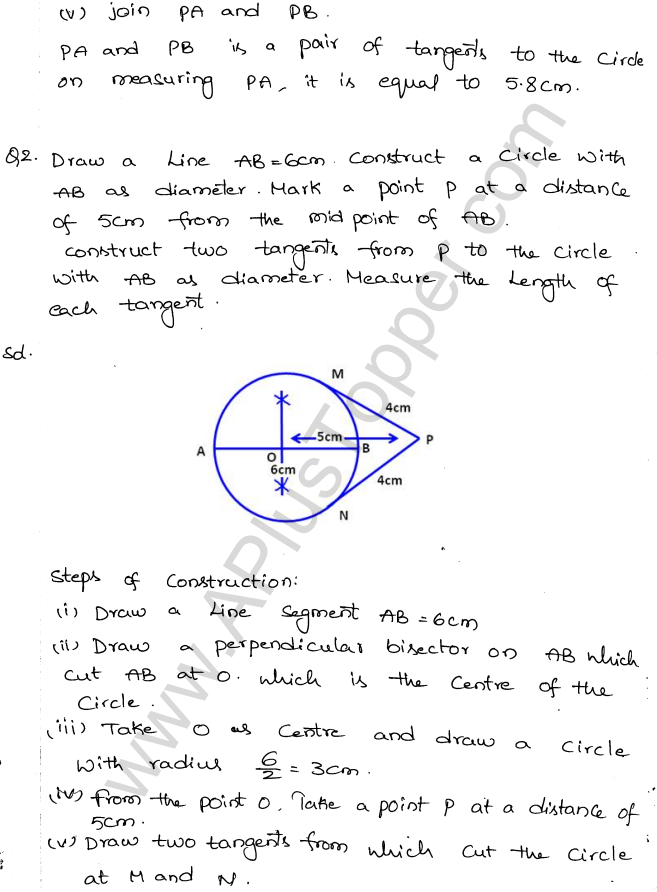 (v) join PA and PB.
PA and PB is a pair of tangents to the circle
on measuring PA, it is equal to 5.8cm.
Q2. Draw a Line AB=6cm. Construct a Circle with
AB as diameter. Mark a point P at a distance
of 5cm from the mid point of AB.
construct two tangents from P to the circle
with AB as diameter. Measure the Length of
each tangent.
Sol.
M
4cm
5cm
P
A
O
B
6cm
4cm
N
Steps of Construction:
(i) Draw a Line Segment AB = 6cm
(ii) Draw a perpendicular bisector on AB which
cut AB at O. which is the Centre of the
Circle.
(iii) Take O as Centre and draw a circle
with radius 6/2 = 3cm.
(iv) from the point O, Take a point P at a distance of
5cm.
(v) Draw two tangents from which cut the circle
at M and N.
www.APlusTopper.com